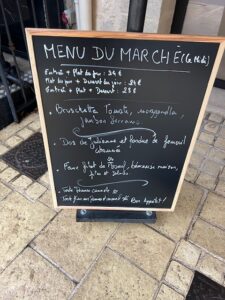 MENU DU MARCHÉ (Le Midi)
Entrée + Plat du jour : 24€
Plat du jour + Dessert du jour : 24€
Entrée + Plat + Dessert :
Bruschetta Tomate, mozzarella,
jambon Serrano
Dos de Julienne et fondue de fenouil
ou
Faux filet de Boeuf, béarnaise maison,
frites et salade
Tarte
Tarte fine
Bon Appétit !